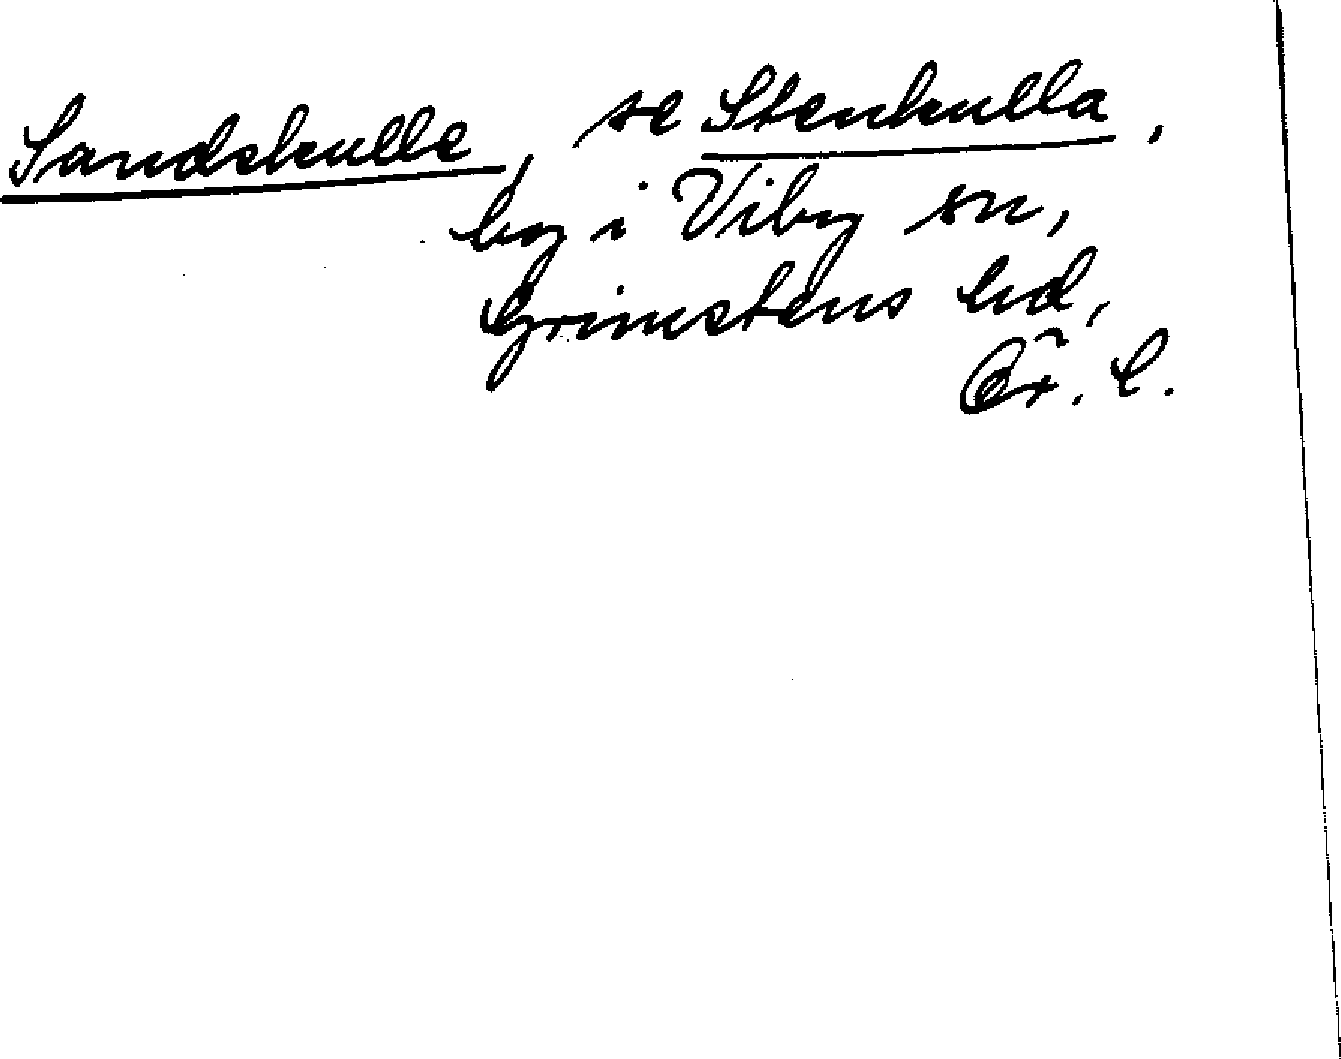 Sandskulle, se Stenkulla,
by i Viby sn,
Grimstens hd,
Ör. l.